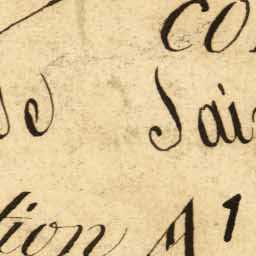 CO
de Sai
tion A1